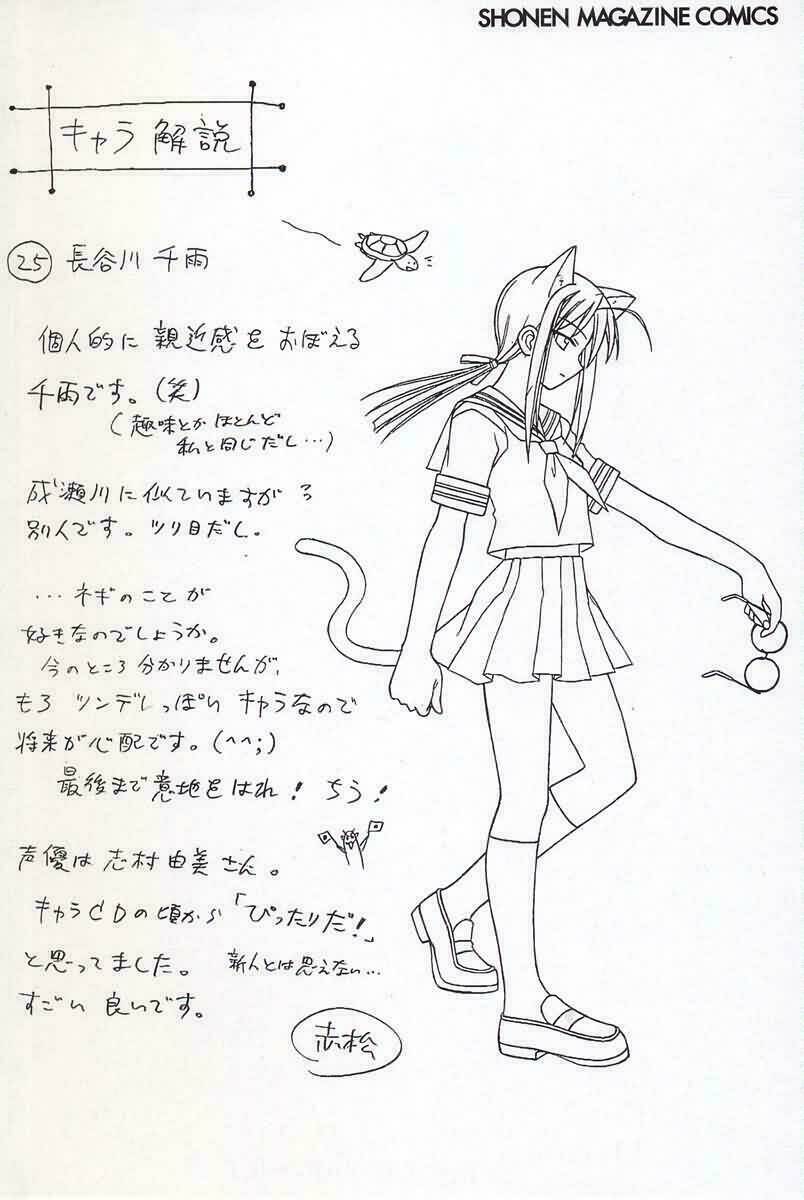 SHONEN MAGAZINE COMICS
キャラ解説
㉕ 長谷川 千雨
個人的に 親近感を おぼえる
千雨です。(笑)
(趣味とか ほとんど
私と同じだし…)
成瀬川に似ていますがろ
別人です。ツリ目だし。
…ネギのことが
好きなのでしょうか。
今のところ分かりませんが、
もろ ツンデレっぽい キャラなので
将来が心配です。(^^;)
最後まで意地をはれ! ちう!
声優は 志村 由美 さん。
キャラCDの頃から「ぴったりだ!」
と思ってました。 新人とは思えない…
すごい 良いです。
赤松